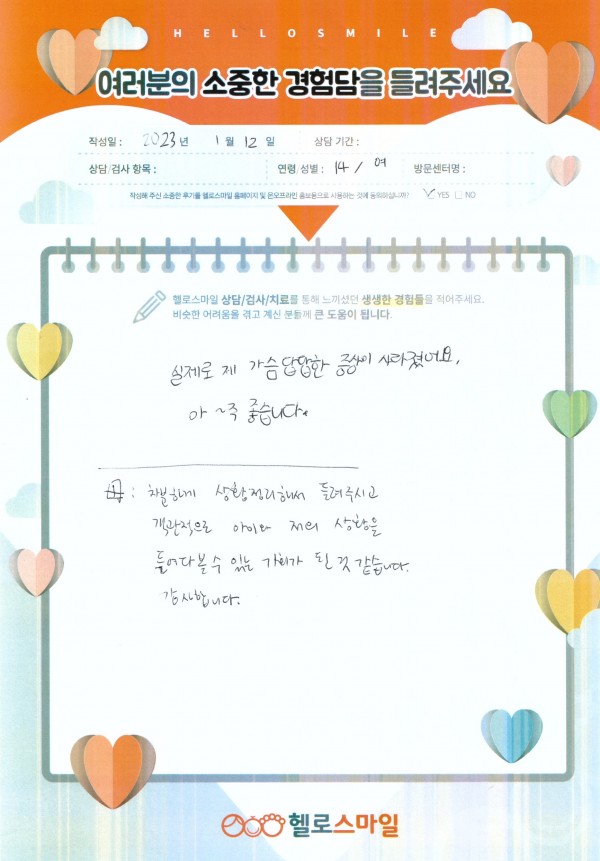 HELLOSMILE
여러분의 소중한 경험담을 들려주세요
작성일 : 2023년 1월 12일 상담 기간 :
상담/검사 항목 : 연령, 성별 : 14 / 여 방문센터명 :
작성해 주신 소중한 후기를 헬로스마일 홈페이지 및 온오프라인 홍보용으로 사용하는 것에 동의하십니까? ☑ YES ☐ NO
헬로스마일 상담/검사/치료를 통해 느끼셨던 생생한 경험들을 적어주세요.
비슷한 어려움을 겪고 계신 분들께 큰 도움이 됩니다.
실제로 제 가슴답답한 증상이 사라졌어요.
아~주 좋습니다.
: 차분하게 상황정리해서 들려주시고
객관적으로 아이와 저의 상황을
들여다볼 수 있는 기회가 된 것 같습니다.
감사합니다.
헬로스마일